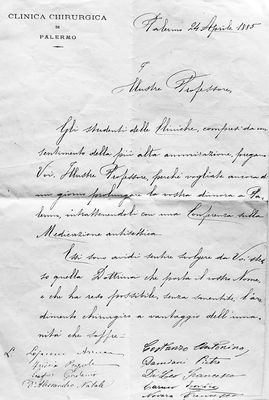 CLINICA CHIRURGICA
DI
PALERMO
Palermo 24 Aprile 1885
Illustre Professore,
Gli studenti delle Cliniche, compresi da un
sentimento della più alta ammirazione, pregano
Voi, Illustre Professore, perchè vogliate ancora d'
un giorno prolungare la vostra dimora a Pa-
lermo, intrattenendoli con una Conferenza sulla
Medicazione antisettica.
Essi sono avidi sentire svolgere da Voi stes-
so quella Dottrina che porta il vostro Nome,
e che ha reso possibile, senza
dimento chirurgico a vantaggio dell'uma-
nità che soffre.
Costanzo
Damiani Pietro
Francesco
D'Alessandro Natale
Francesco